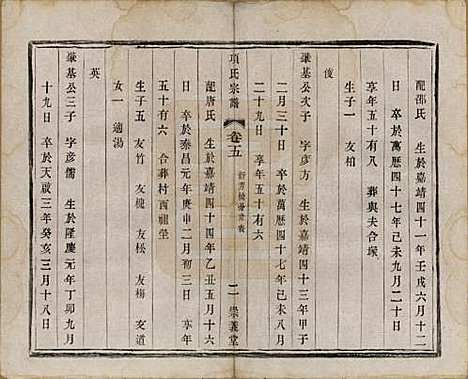 配邵氏 生於嘉靖四十一年壬戌六月十二
日 卒於萬曆四十七年己未九月二十日
享年五十有八 葬與夫合塚
生子一 友柏
俊
肇基公次子 字彥方 生於嘉靖四十三年甲子
二月三十日 卒於萬曆四十七年己未八月
二十九日 享年五十有六
項氏宗譜 卷五 二 崇義堂
配唐氏 生於嘉靖四十四年乙丑五月十六
日 卒於泰昌元年庚申二月初三日 享年
五十有六 合葬村西祖塋
生子五 友竹 友槐 友松 友梅 友道
女一 適湯
英
肇基公三子 字彥儒 生於隆慶元年丁卯九月
十九日 卒於天啟三年癸亥三月十八日